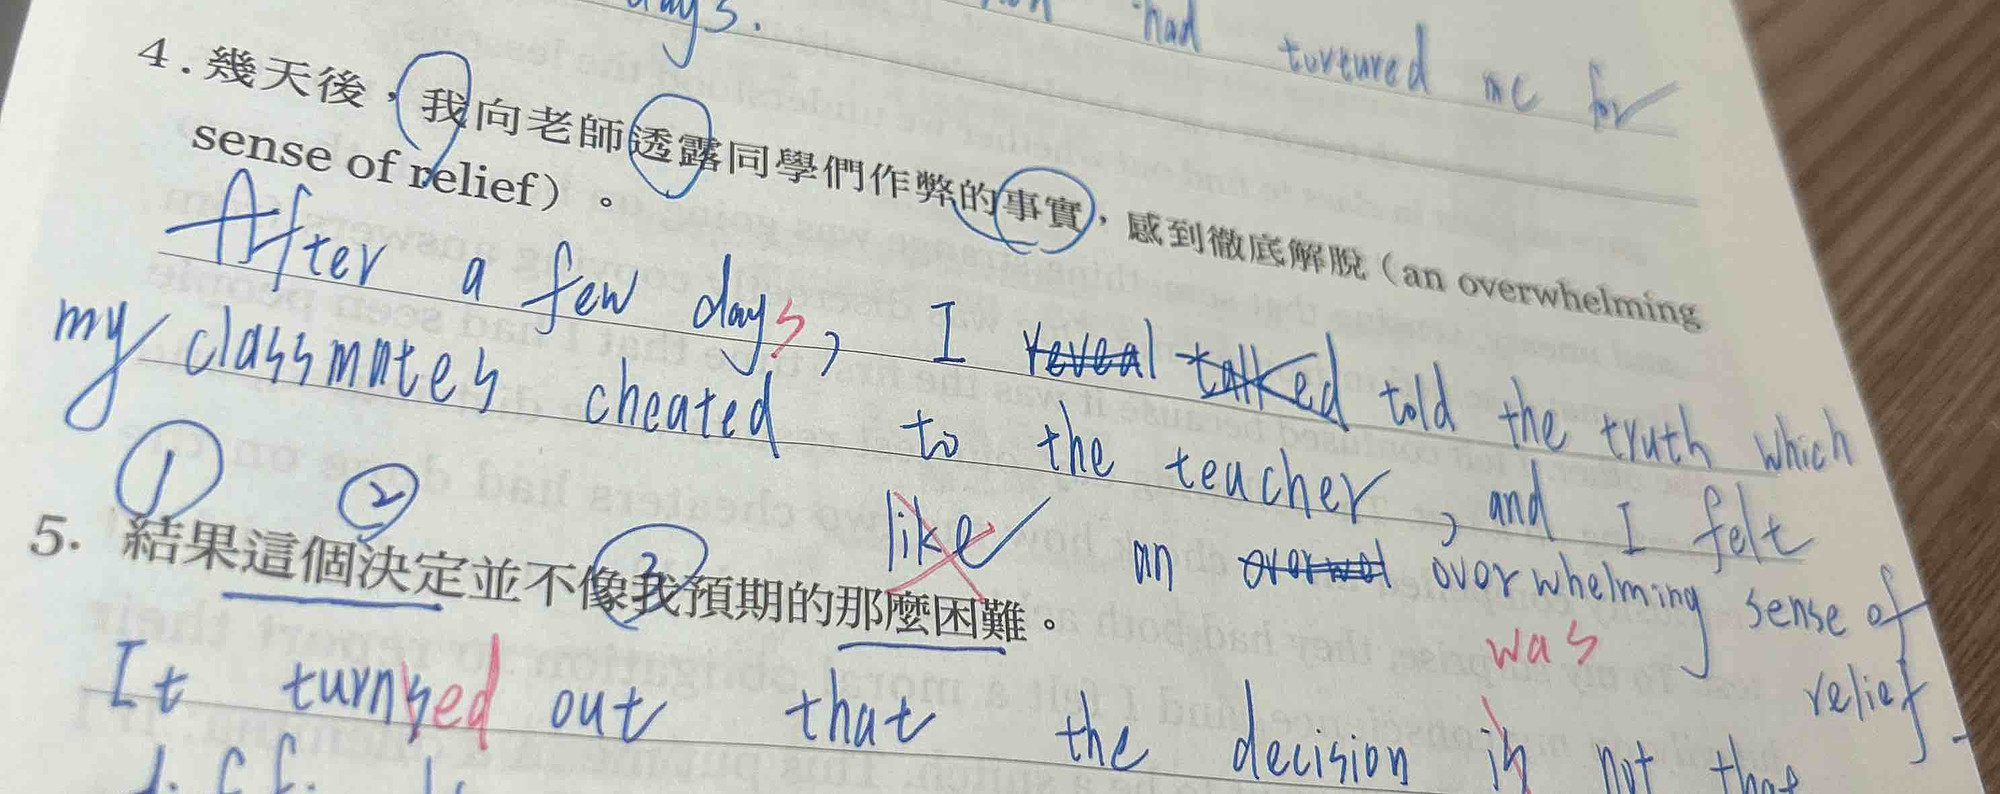 had tortured me for
4.幾天後，我向老師透露同學們作弊的事實，感到徹底解脫（an overwhelming
sense of relief）。
After a few days, I reveal talked told the truth which
my classmates cheated to the teacher, and I felt
like an overwhelming sense of
relief.
① ②
5. 結果這個決定並不像我預期的那麼困難。
was
It turnsed out that the decision is not that